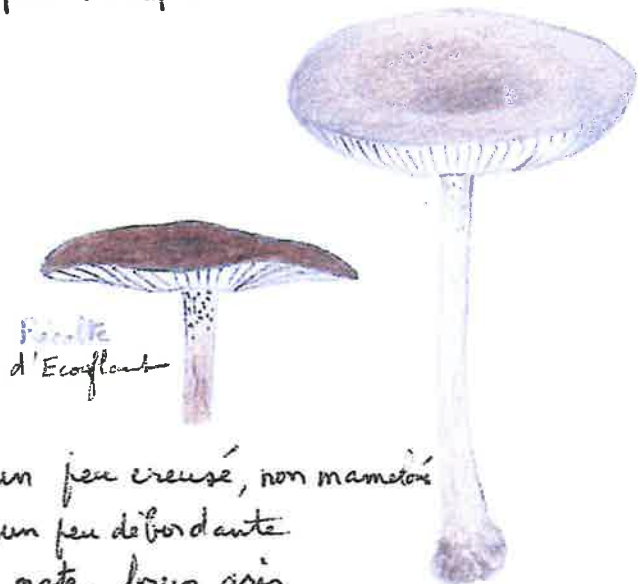 Récolte
d'Ecouflant
un peu creusé, non mameloné
un peu débordante
mate, brun gris